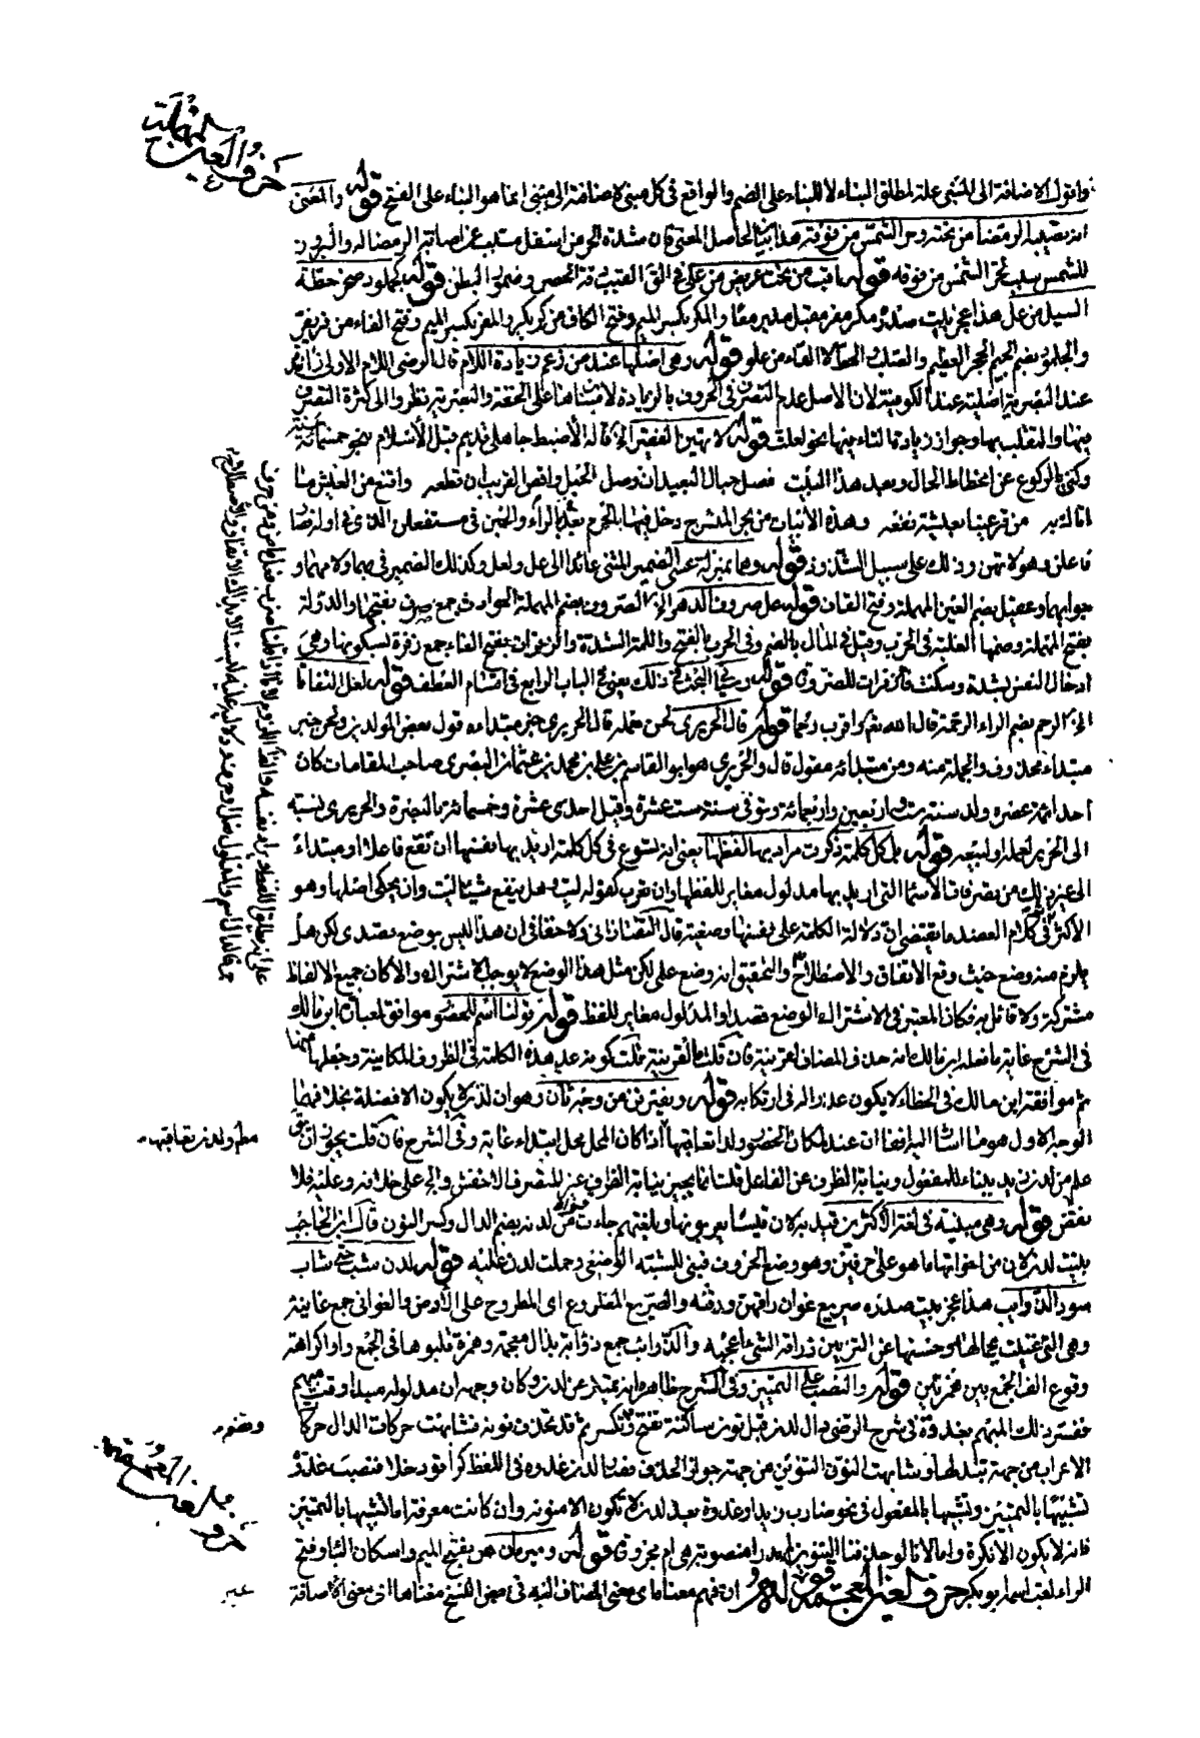 حرف العين المهملة
واقول الاضافة الى المبنى علة لمطلق البناء لا للبناء على الضم والواقع فى كل مبنى لاضافته الى مبنى انما هو البناء على الفتح قوله والمعنى
انه تصيبه الرمضا من تحته وحر الشمس من فوقه هذا بيان لحاصل المعنى فان شدة الحر من اسفل مسبب عن اصابته الرمضا له والبروز
للشمس سبب لحر الشمس من فوقه قوله اقب من تحت عريض من على الق القبب دقة الخصر وضمور البطن قوله كجلمود صخر حطه
السيل من عل هذا عجز بيت صدره مكر مفر مقبل مدبر معا والمكر بكسر الميم وفتح الكاف من كر يكر والمفر بكسر الميم وفتح الفاء من فر يفر
والجلمود بضم الجيم الحجر العظيم والصلب الحط الالقاء من علو قوله وهى اصلها عند من زعم زيادة اللام قال الرضى اللام الاولى زائدة
عند البصرية اصلية عند الكوفية لان الاصل عدم التصرف فى الحروف بالزيادة لان مبناها على الخفة والبصرية نظروا الى كثرة التصرف
فيها والتقلب بها وجواز زيادة التاء فيها نحو لعلت قوله لا تهين الفقير الخ قاله الأضبط جاهلى قديم قبل الاسلام بنحو خمسمائة سنة
وكنى بالركوع عن انحطاط الحال وبعد هذا البيت فصل حبال البعيد ان وصل الحبل واقص القريب ان قطعه واقنع من العيش ما
اتاك به من قر عينا بعيشه نفعه وهذه الابيات من بحر المنسرح دخل فيها الخرم بعد
فاعلن وهو لا تهن وذلك على سبيل الشذوذ قوله وهما بمنزلة عسى الضمير المثنى عائد الى عل ولعل وكذلك الضمير فى
جوابهما وعقيل بضم العين المهملة وفتح القاف قوله عل صروف الدهر الخ الصروف بضم المهملة الحوادث جمع صرف بفتحها والدولة
بفتح المهملة وضمها الغلبة فى الحرب وقيل فى المال بالضم وفى الحرب بالفتح واللمة الشدة والزفرات بفتح الفاء جمع زفرة بسكونها وهى
ادخال النفس بشدة وسكنت فاء زفرات للضرورة قوله وسيأتى البحث فى ذلك يعنى فى الباب الرابع فى اقسام العطف قوله لعل التفاتا
الخ الرحم بضم الراء الرحمة قال الله تعالى واقرب رحما قوله قال الحريرى لحن
مبتداء محذوف والجملة منه ومن مبتدائه مقول قال والحريرى هو ابو القاسم بن على بن محمد بن عثمان البصرى صاحب المقامات كان
احد ائمة عصره ولد سنة ست واربعين واربعمائة وتوفى سنة ست عشرة وقيل احدى عشرة وخمسمائة بالبصرة والحريرى نسبة
الى الحرير لعمله او لبيعه قوله بل كل كلمة ذكرت مراد بها لفظها يعنى انه يسوغ فى كل كلمة اريد بها نفسها ان تقع فاعلا او مبتداء
الى غير ذلك من تصرفات الاسماء التى اريد بها مدلول مغاير للفظها وان تعرب كقوله ليت وهل ينفع شيئا ليت وان يحكى اصلها وهو
الاكثر وفى كلام العضد ما يقتضى ان دلالة الكلمة على نفسها وضعية قال التفتازانى ولا خفاء فى ان هذا ليس بوضع قصدى لكن هل
يلزم منه وضع حيث وقع الاتفاق والاصطلاح والتحقيق انه وضع على لكن مثل هذا الوضع لا يوجب الاشتراك والا كان جميع الالفاظ
مشتركة ولا قائل به فكان المعتبر فى الاشتراك الوضع قصدا والمدلول مغاير للفظ قوله قولنا اسم للحضور موافق لعبارة ابن مالك
فى الشرح غاية ما فعله ابن مالك انه حذف المضاف لقرينة فان قلت ما القرينة قلت كونه عد هذه الكلمة فى الظروف المكانية وجعلها منها
ثم موافقة ابن مالك فى الخطاء لا يكون عذرا له فى ارتكابه قوله ويفترقن من وجه ثان وهو ان لدن لا يكون الا فضلة بخلافهما
الوجه الاول هو ما اشار اليه ايضا ان عند لمكان الحضور ولدا تعاقبها اذا كان المحل محل ابتداء غاية وفى الشرح فان قلت يجوز ان
علم من لدن زيد ببناء للمفعول ونيابة الظرف عن الفاعل قلت انما يجيز نيابة الظرف غير المتصرف الاخفش والى على خلافه وعليه فلا
نقض قوله وهى مبنية فى لغة الاكثرين قيد به لان قيسا يعربونها وبلغتهم جاءت قراءة من لدنه بضم الدال وكسر النون قال ابن الحاجب
بنيت لدن لان من اخواتها ما هو على حرفين وهو وضع الحروف فبنى للشبه الوضعى وحملت لدن عليه قوله لدن شب حتى شاب
سود الذوايب هذا عجز بيت صدره صريع غوان راقهن ورقنه والصريع المقلوع اى المطروح على الارض والغوانى جمع غانية
وهى التى غنيت بجمالها وحسنها عن التزيين وراقه الشئ اعجبه والذوائب جمع ذؤابة بذال معجمة وهمزة قلبوها فى الجمع واوا كراهة
وقوع الف الجمع بين همزتين قوله والنصب على التمييز وفى الشرح ظاهره انه تمييز عن لدن وكان وجهه ان مدلوله مبدا وقت مبهم
ففسر ذلك المبهم بغدوة فى شرح الرضى دال لدن قبل نون ساكنة تفتح وتكسر ثم قد تحذف نونه فشابهت حركات الدال حركات
الاعراب من جهة تبدلها وشابهت النون التنوين من جهة جواز الحذف فصار لدن غدوة فى اللفظ كراقود خلا فنصبت غدوة
تشبيها بالتمييز وتشبيها بالمفعول فى نحو ضارب زيدا وغدوة بعد لدن لا تكون الا منونة وان كانت معرفة اما لتشبيهها بالتمييز
فانه لا يكون الا نكرة واما لانا لو حذفنا التنوين لم يدر امنصوبة هى ام مجرورة قوله ومبرمان هو بفتح الميم واسكان الباء وفتح
الراء لقب اسمه ابو بكر حرف الغين المعجمة قوله ان فهم معناه اى معنى المضاف اليه فى بعض النسخ معناها اى معنى الاضافة
حرف الغين المعجمة